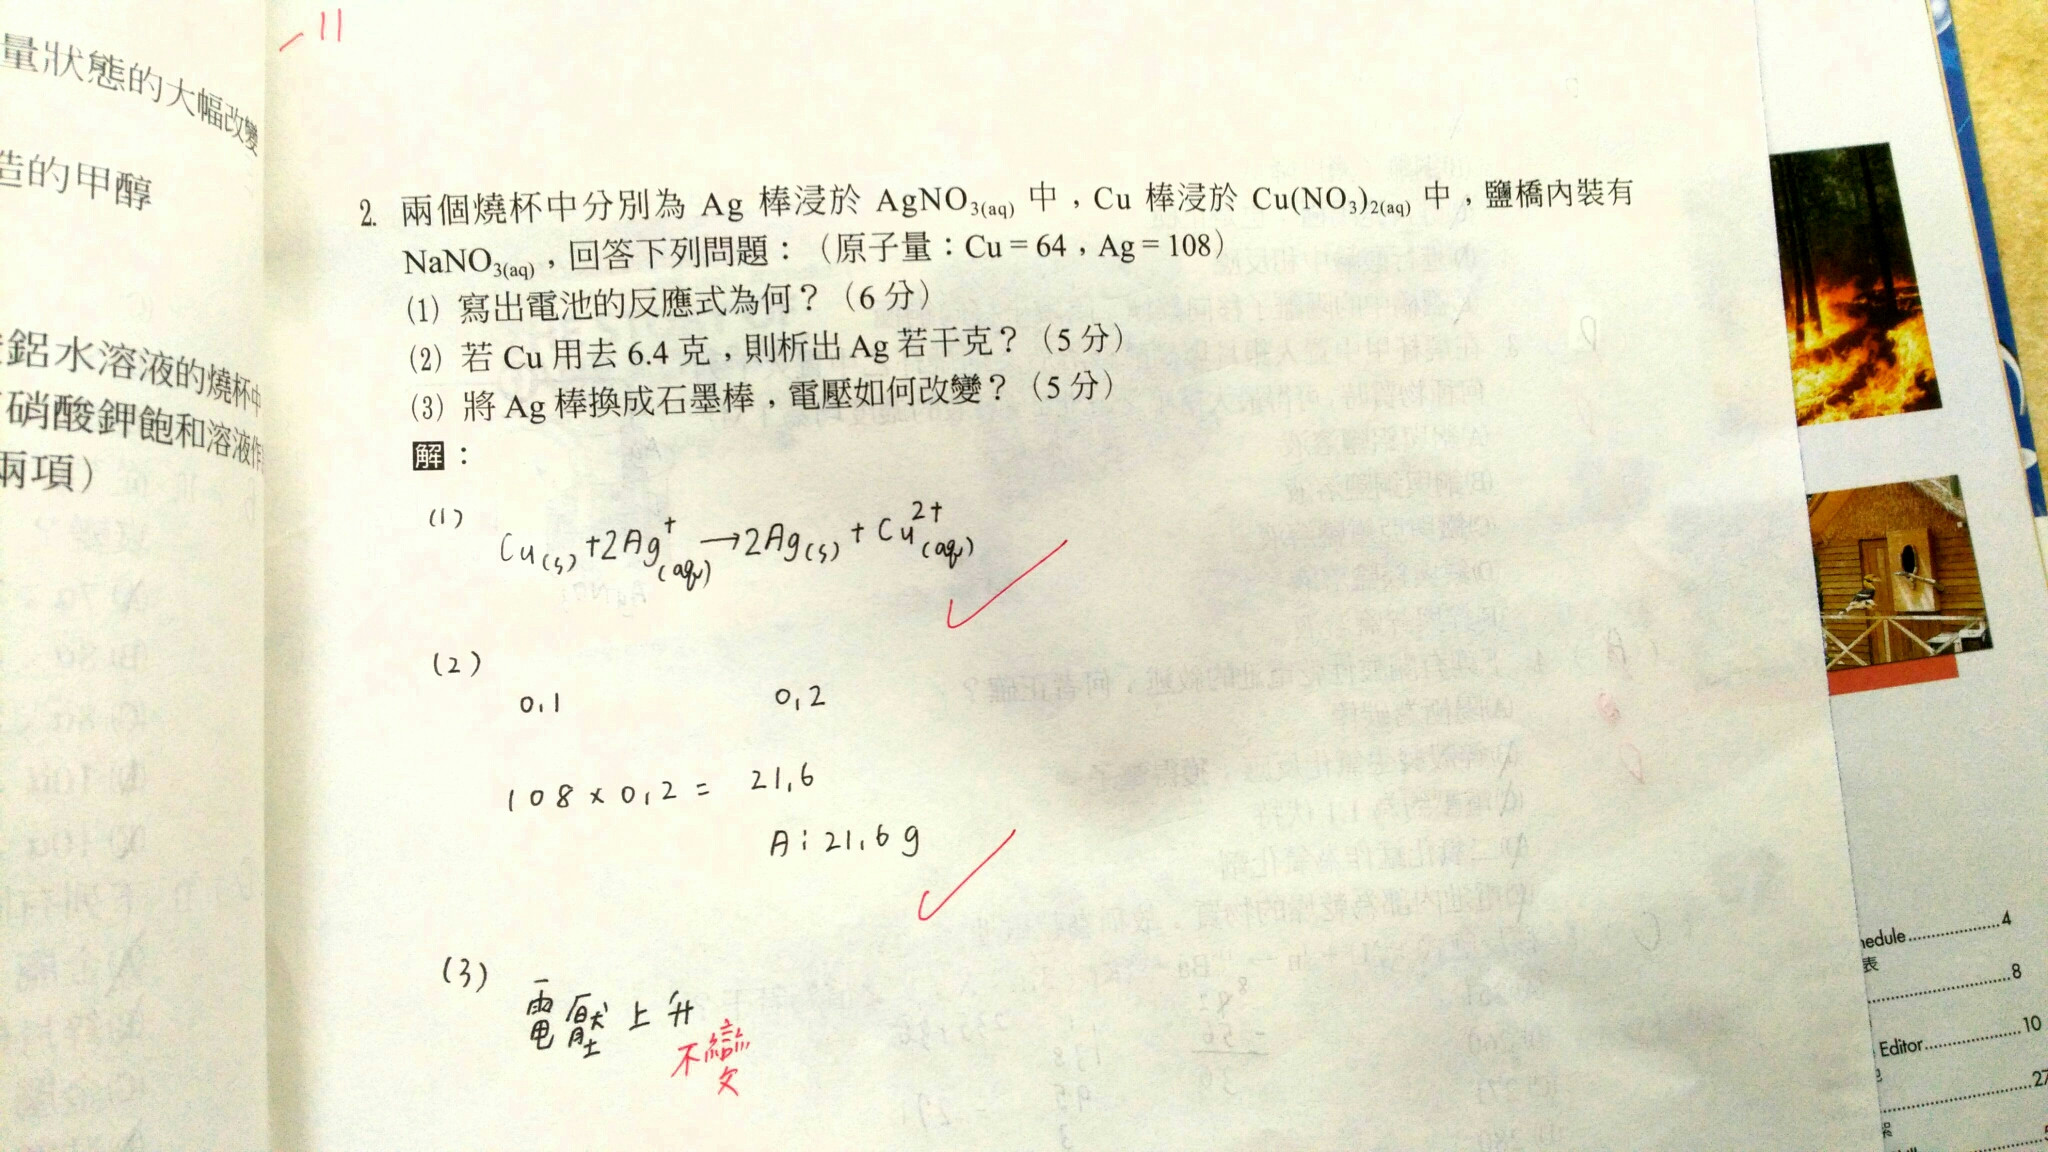 -11
量狀態的大幅改變
造的甲醇
鋁水溶液的燒杯中
硝酸鉀飽和溶液作
兩項）
2. 兩個燒杯中分別為 Ag 棒浸於 AgNO3(aq) 中，Cu 棒浸於 Cu(NO3)2(aq) 中，鹽橋內裝有
NaNO3(aq)，回答下列問題：（原子量：Cu = 64，Ag = 108）
(1) 寫出電池的反應式為何？（6 分）
(2) 若 Cu 用去 6.4 克，則析出 Ag 若干克？（5 分）
(3) 將 Ag 棒換成石墨棒，電壓如何改變？（5 分）
解：
(1) Cu(s) + 2Ag+(aq) → 2Ag(s) + Cu2+(aq)
(2)
0.1 0.2
108 × 0.2 = 21.6
A: 21.6 g
(3) 電壓上升
不變
hedule 4
表
8
Editor 10
27